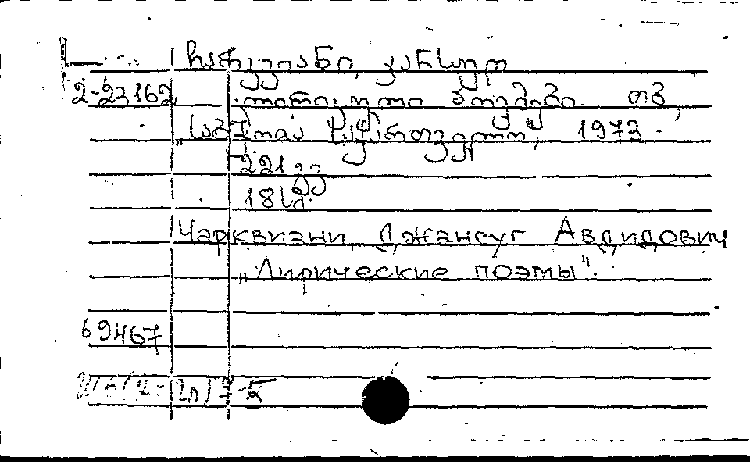 ჩარკვიანი, ჯანსუღ
2-23162 ლირიკული პოემები. თბ.,
„საბჭოთა საქართველო", 1973.
221 გვ.
18 სმ.
Чарквиани, Джансуг Авдидович
„Лирические поэмы".
69467